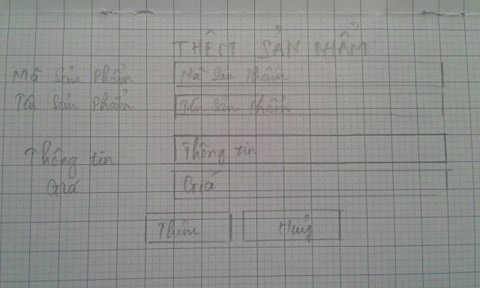 THÊM SẢN PHẨM
Mã Sản Phẩm Mã Sản Phẩm
Tên Sản Phẩm Tên Sản Phẩm
Thông tin Thông tin
Giá Giá
Thêm Huỷ